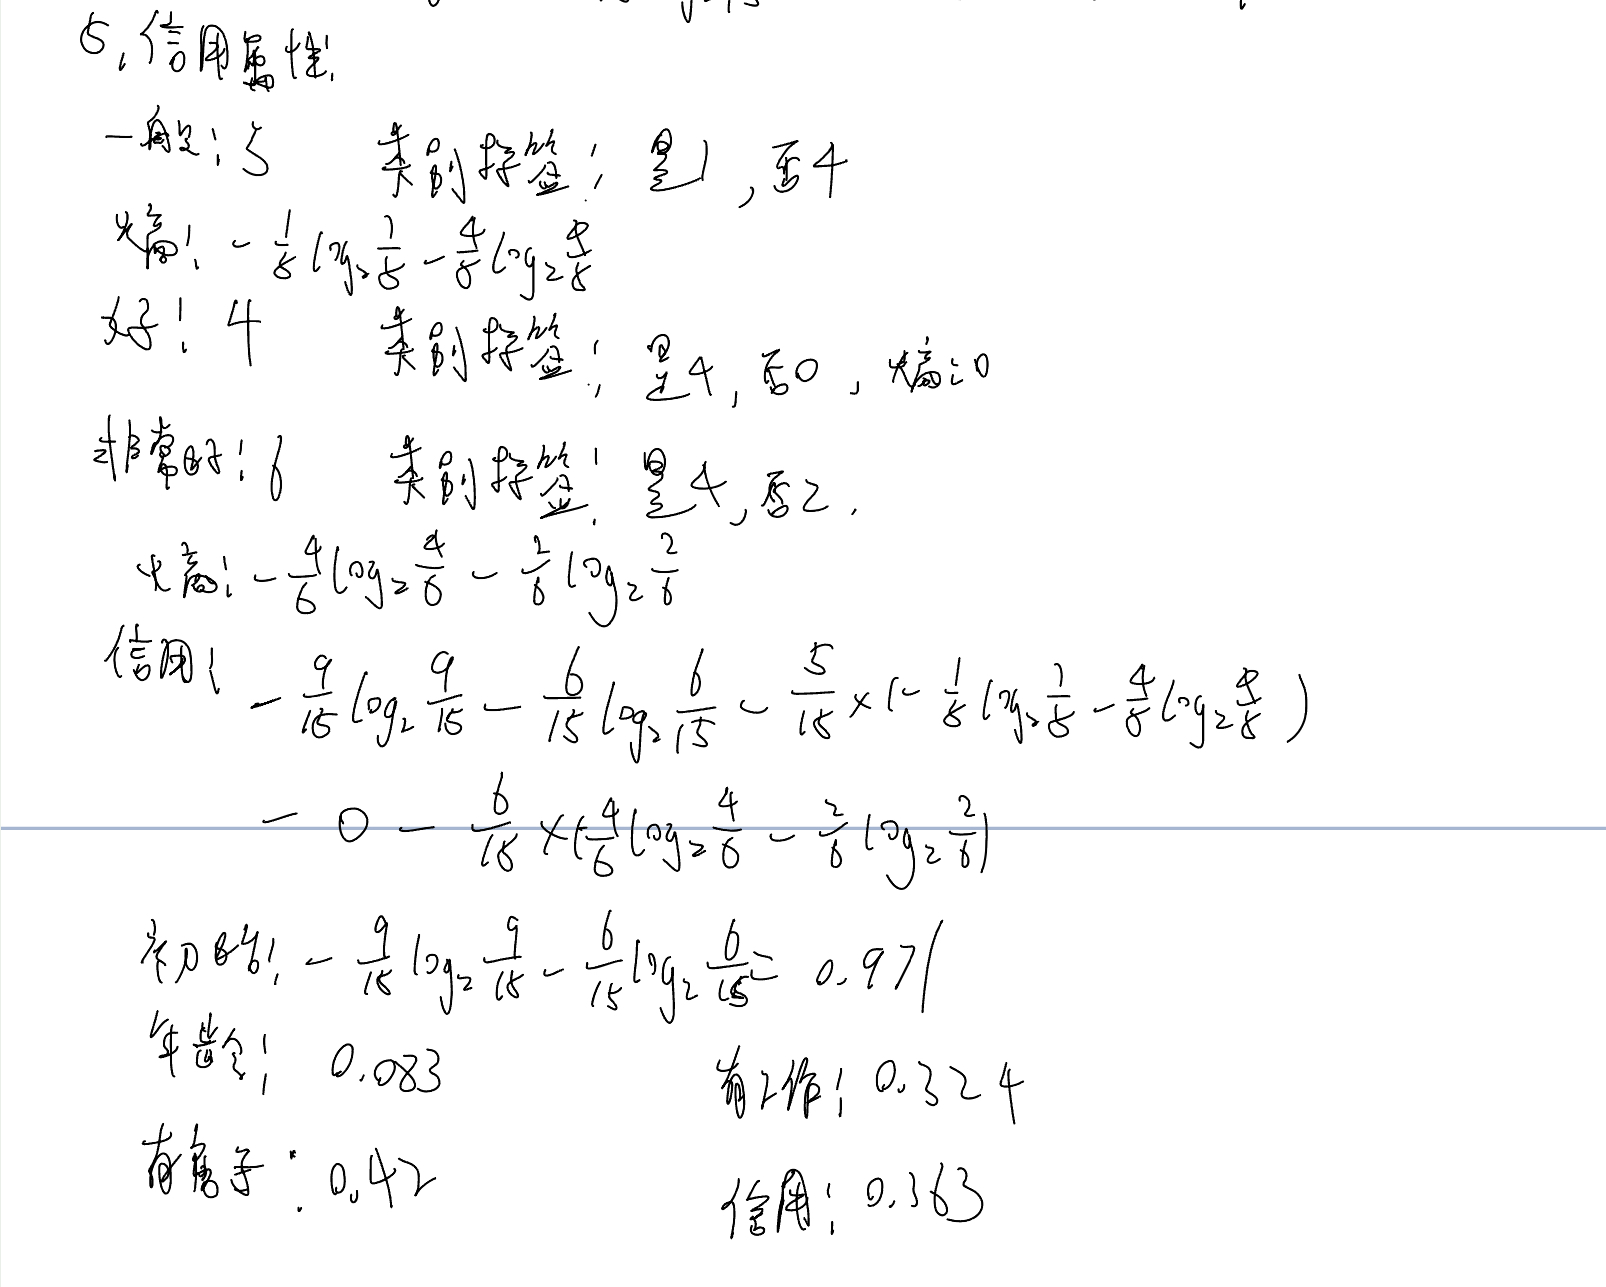 5.信用属性:
一般:5 类别标签:是1,否4
熵:-1/5 log₂ 1/5 - 4/5 log₂ 4/5
好:4 类别标签:是4,否0,熵:0
非常好:6 类别标签:是4,否2.
熵:-4/6 log₂ 4/6 - 2/6 log₂ 2/6
信用: -9/15 log₂ 9/15 - 6/15 log₂ 6/15 - 5/15 ×(-1/5 log₂ 1/5 - 4/5 log₂ 4/5)
-0-6/15 ×(-4/6 log₂ 4/6 - 2/6 log₂ 2/6)
初始:-9/15 log₂ 9/15 - 6/15 log₂ 6/15 = 0.971
年龄:0.083 有工作:0.324
有房子:0.42 信用:0.363